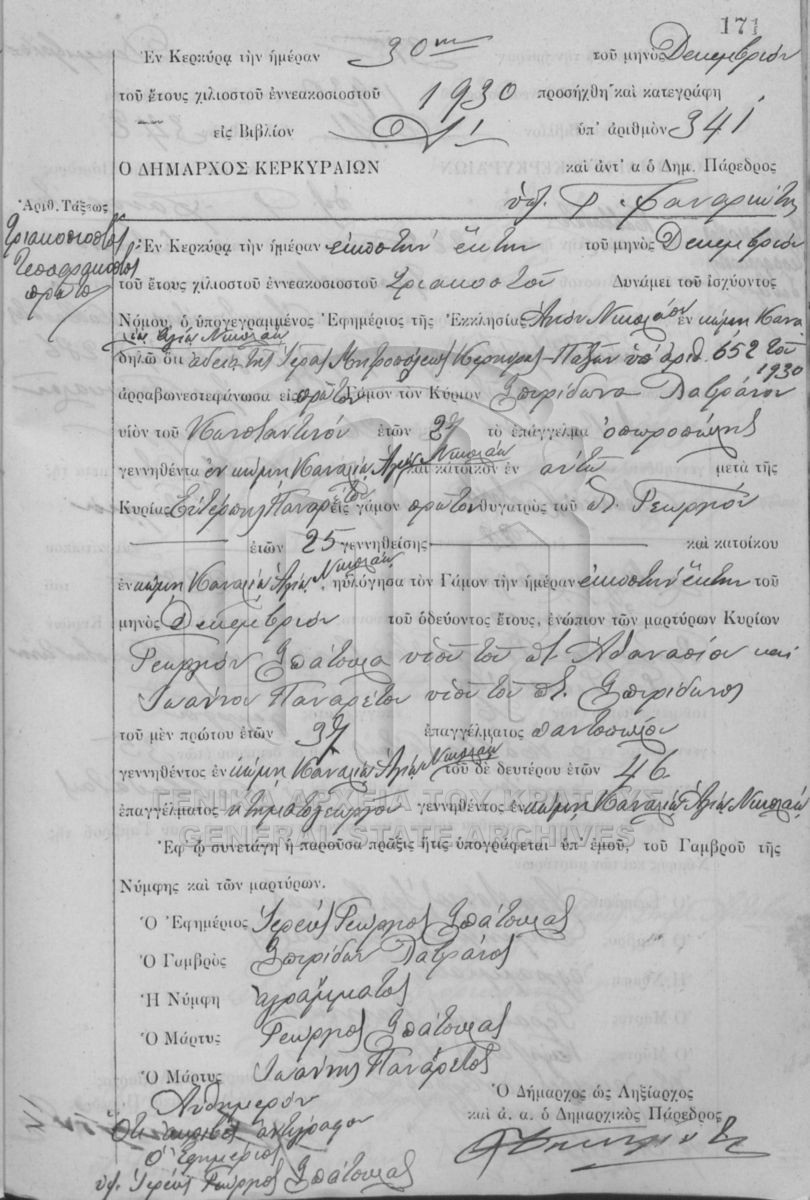 171
Ἐν Κερκύρᾳ τὴν ἡμέραν 30ην τοῦ μηνὸς Δεκεμβρίου
τοῦ ἔτους χιλιοστοῦ ἐννεακοσιοστοῦ 1930 προσήχθη καὶ κατεγράφη
εἰς Βιβλίον ὑπ' ἀριθμὸν 341
Ο ΔΗΜΑΡΧΟΣ ΚΕΡΚΥΡΑΙΩΝ καὶ ἀντ' α ὁ Δημ. Πάρεδρος
Ἀριθ. Τάξεως
Τριακοσιοστὸς
Τεσσαρακοστὸς
πρῶτος
Ἐν Κερκύρᾳ τὴν ἡμέραν εἰκοστὴν ἕκτην τοῦ μηνὸς Δεκεμβρίου
τοῦ ἔτους χιλιοστοῦ ἐννεακοσιοστοῦ τριακοστοῦ Δυνάμει τοῦ ἰσχύοντος
Νόμου, ὁ ὑπογεγραμμένος Ἐφημέριος τῆς Ἐκκλησίας Ἁγίου Νικολάου ἐν κώμῃ Κανα
λίων Ἁγίου Νικολάου
δηλῶ ὅτι ἀδείᾳ τῆς Ἱερᾶς Μητροπόλεως Κερκύρας Παξῶν ὑπ' ἀριθ. 652 τοῦ
1930
ἀρραβωνεστεφάνωσα εἰς πρῶτον Γάμον τὸν Κύριον Σπυρίδωνα Λατράνον
υἱὸν τοῦ Κωνσταντίνου ἐτῶν 27 τὸ ἐπάγγελμα ὀπωροπώλης
γεννηθέντα ἐν κώμῃ Καναλίων Ἁγίου Νικολάου καὶ κάτοικον ἐν αὐτῇ μετὰ τῆς
Κυρίας Εὐτέρπης Παναρέτου εἰς γάμον πρῶτον θυγατρὸς τοῦ π. Γεωργίου
ἐτῶν 25 γεννηθείσης καὶ κατοίκου
ἐν κώμῃ Καναλίων Ἁγίου Νικολάου, ηὐλόγησα τὸν Γάμον τὴν ἡμέραν εἰκοστὴν ἕκτην τοῦ
μηνὸς Δεκεμβρίου τοῦ ὁδεύοντος ἔτους, ἐνώπιον τῶν μαρτύρων Κυρίων
Γεωργίου Σπάτουλα υἱοῦ τοῦ π. Ἀθανασίου καὶ
Ἰωάννου Παναρέτου υἱοῦ τοῦ π. Σπυρίδωνος
τοῦ μὲν πρώτου ἐτῶν 37 ἐπαγγέλματος παντοπώλου
γεννηθέντος ἐν κώμῃ Καναλίων Ἁγίου Νικολάου τοῦ δὲ δευτέρου ἐτῶν 46
ἐπαγγέλματος κτηματογεωργοῦ γεννηθέντος ἐν κώμῃ Καναλίων Ἁγίου Νικολάου
ΓΕΝΙΚΑ ΑΡΧΕΙΑ ΤΟΥ ΚΡΑΤΟΥΣ
GENERAL STATE ARCHIVES
Ἐφ' ᾧ συνετάγη ἡ παροῦσα πρᾶξις ἥτις ὑπογράφεται ὑπ' ἐμοῦ, τοῦ Γαμβροῦ τῆς
Νύμφης καὶ τῶν μαρτύρων.
Ὁ Ἐφημέριος Ἱερεὺς Γεώργιος Σπάτουλας
Ὁ Γαμβρὸς Σπυρίδων Λατράνος
Ἡ Νύμφη ἀγράμματος
Ὁ Μάρτυς Γεώργιος Σπάτουλας
Ὁ Μάρτυς Ἰωάννης Πανάρετος
Αὐθημερόν
Ὅτι ἀκριβὲς ἀντίγραφον
Ὁ Ἐφημέριος
ὑπ. Ἱερεὺς Γεώργιος Σπάτουλας
Ὁ Δήμαρχος ὡς Ληξίαρχος
καὶ ἀ. α. ὁ Δημαρχικὸς Πάρεδρος